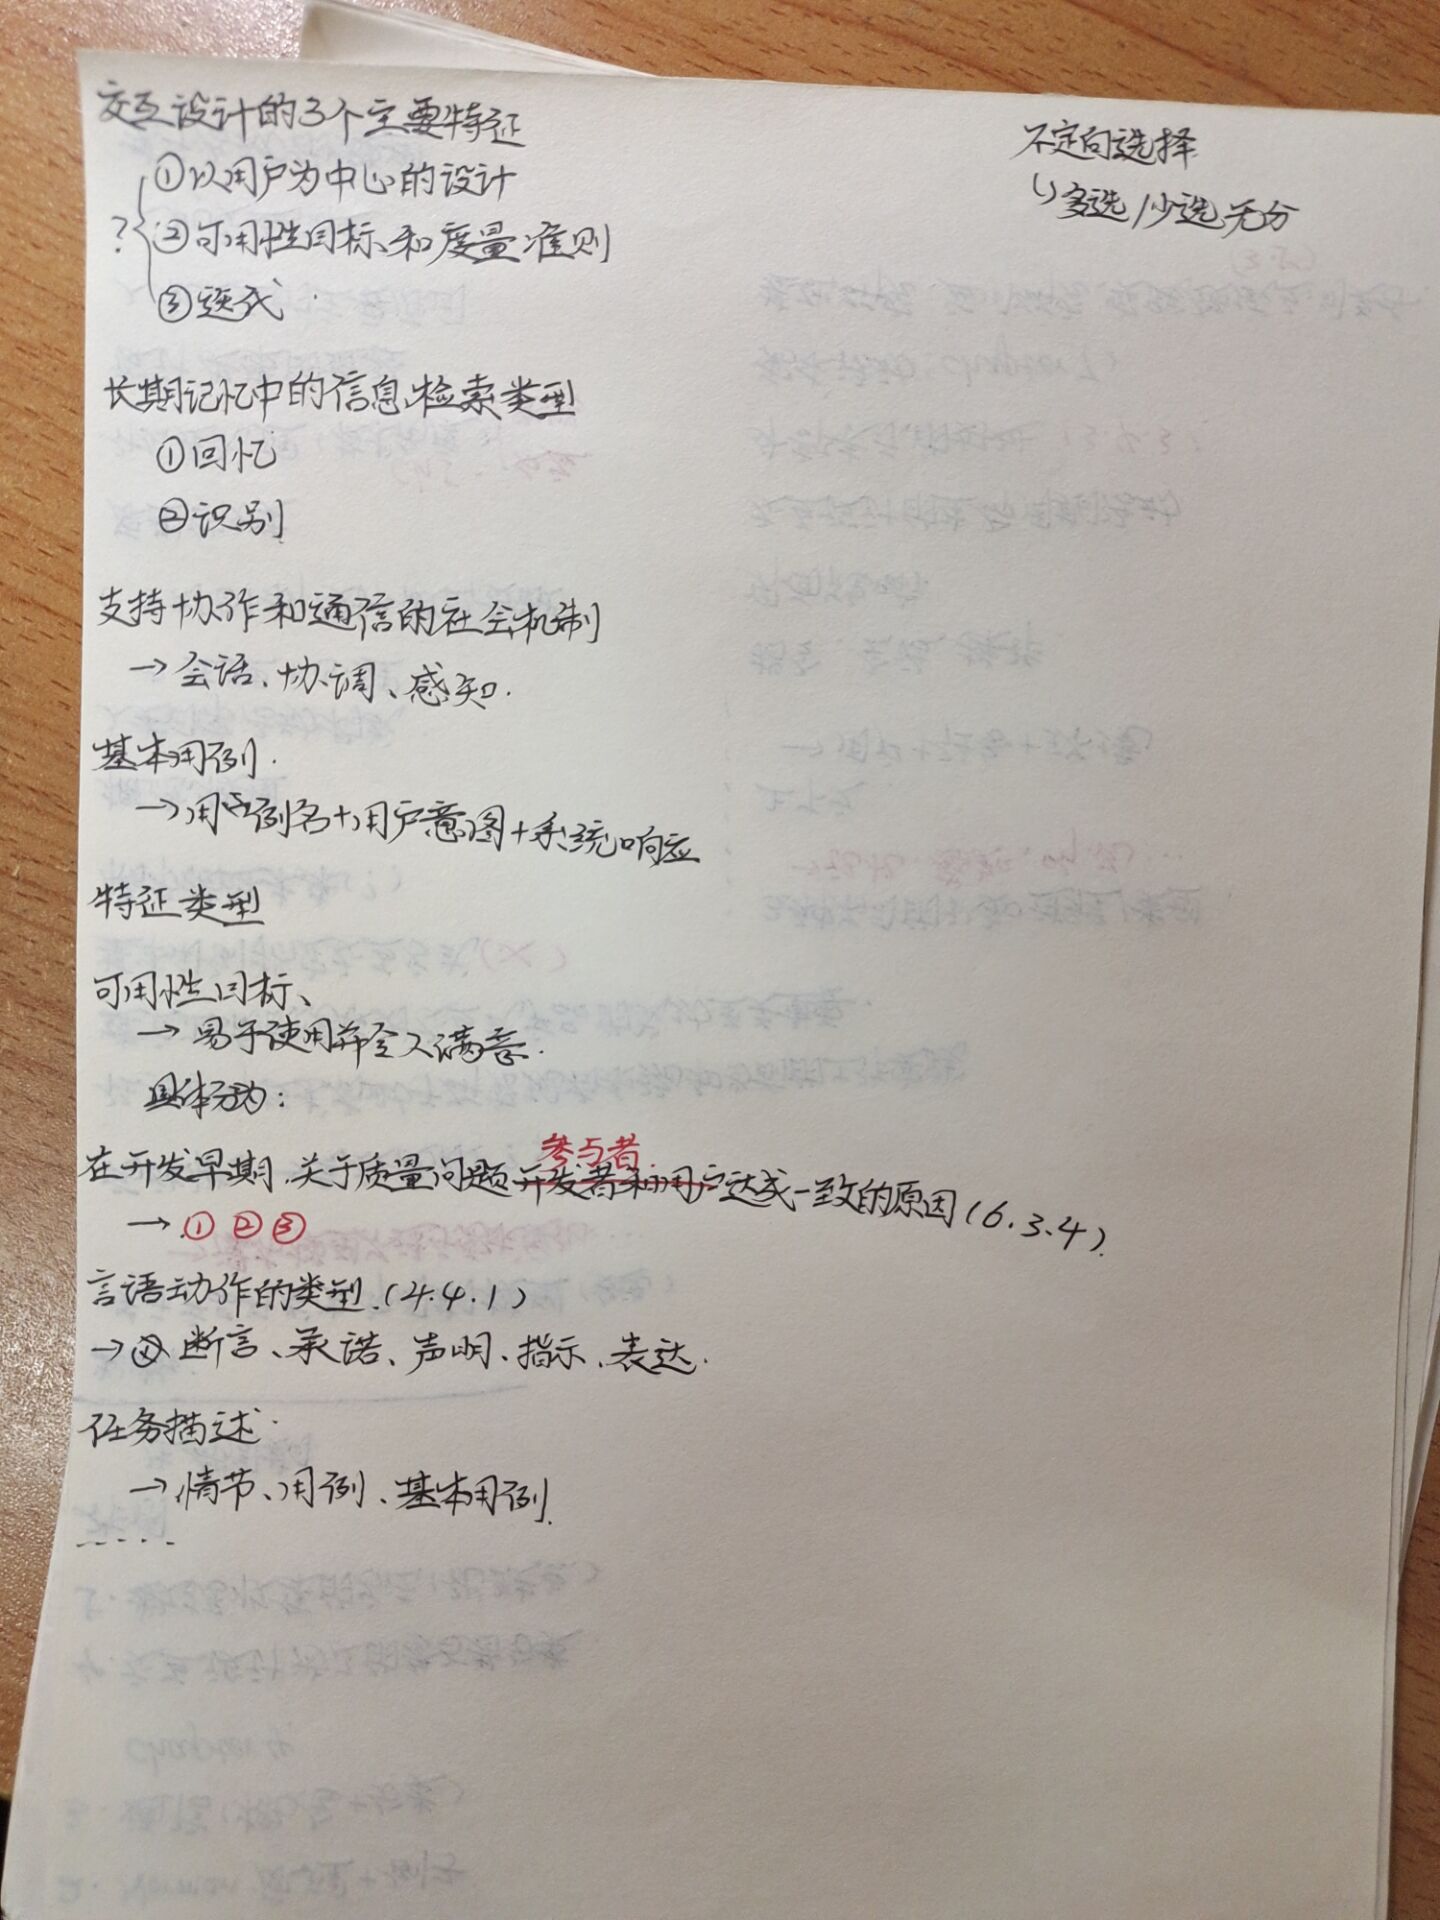 交互设计的3个主要特征
①以用户为中心的设计
? ②可用性目标和度量准则
③迭代
长期记忆中的信息检索类型
①回忆
②识别
支持协作和通信的社会机制
→会话、协调、感知.
基本用例.
→用例名+用户意图+系统响应
特征类型
可用性目标、
→易于使用并令人满意.
具体分为:
参与者.
在开发早期.关于质量问题开发者和用户达成一致的原因(6.3.4).
→①②③
言语动作的类型.(4.4.1)
→断言、承诺、声明、指示、表达.
任务描述.
→情节、用例、基本用例.
.....
不定向选择
多选/少选无分